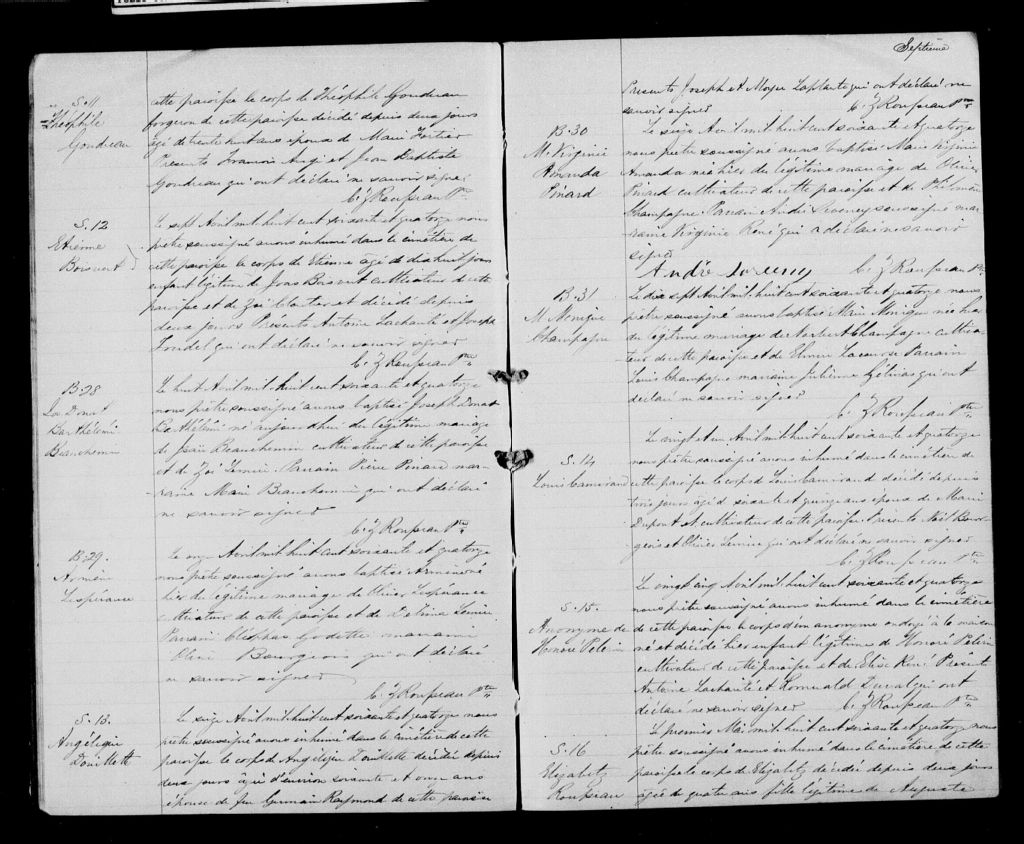 S. 11
Théophile
Gondreau
cette paroisse le corps de Théophile Gondreau
forgeron de cette paroisse décédé depuis deux jours
agé de trente huit ans époux de Marie Fortier
Présents François Augé et Jean Baptiste
Gondreau qui ont déclaré ne savoir signer
C. Z Rousseau Ptre
S. 12
Etienne
Boisvert
Le sept Avril mil huit cent soixante et quatorze nous
prêtre soussigné avons inhumé dans le cimétière de
cette paroisse le corps de Etienne agé de dixhuit jours
enfant légitime de Boisvert cultivateur de cette
paroisse et de Zoé et décédé depuis
deux jours Présents Antoine Lacharité et Joseph
Trudel qui ont déclaré ne savoir signer
C. Z Rousseau Ptre
B. 28
Donat
Barthélémi
Beauchemin
Le huit Avril mil huit cent soixante et quatorze
nous prêtre soussigné avons baptisé Joseph Donat
Barthélémi né aujourdhui du légitime mariage
de Beauchemin cultivateur de cette paroisse
et de Zoé Parrain Pierre Pinard mar-
raine Marie Beauchemin qui ont déclaré
ne savoir signer
C. Z Rousseau Ptre
B. 29.
Lespérance
Le onze Avril mil huit cent soixante et quatorze
nous prêtre soussigné avons baptisé né
hier du légitime mariage de Olivier Lespérance
cultivateur de cette paroisse et de
Parrain Cléophas Godette marraine
Bourgeois qui ont déclaré
ne savoir signer
C. Z Rousseau Ptre
S. 13.
Angélique
Le seize Avril mil huit cent soixante et quatorze nous
prêtre soussigné avons inhumé dans le cimétière de cette
paroisse le corps de Angélique décédée depuis
deux jours agée d'environ soixante et onze ans
épouse de feu Germain Raymond de cette paroisse
Septième
Présents Joseph et Moyse Laplante qui ont déclaré ne
savoir signer
C. Z Rousseau Ptre
B. 30
M. Virginie
Amanda
Pinard
Le seize Avril mil huit cent soixante et quatorze
nous prêtre soussigné avons baptisé Marie Virginie
Amanda née hier du légitime mariage de Olivier
Pinard cultivateur de cette paroisse et de Philomène
Champagne Parrain André soussigné mar-
raine Virginie René qui a déclaré ne savoir
signer
André
C. Z Rousseau Ptre
B. 31
M. Monique
Champagne
Le dix sept Avril mil huit cent soixante et quatorze nous
prêtre soussigné avons baptisé Marie Monique née hier
du légitime mariage de Norbert Champagne cultiva-
teur de cette paroisse et de Parrain
Louis Champagne marraine Julienne Gélinas qui ont
déclaré ne savoir signer
C. Z Rousseau Ptre
S. 14
Louis Camirand
Le vingt et un Avril mil huit cent soixante et quatorze
nous prêtre soussigné avons inhumé dans le cimétière de
cette paroisse le corps de Louis Camirand décédé depuis
trois jours agé de soixante et quinze ans époux de Marie
Dupont et cultivateur de cette paroisse Présents Noël Bour-
geois et Olivier qui ont déclaré ne savoir signer
C. Z Rousseau Ptre
S. 15.
Anonyme de
Honoré
Le vingt cinq Avril mil huit cent soixante et quatorze
nous prêtre soussigné avons inhumé dans le cimétière
de cette paroisse le corps d'un anonyme ondoyé à la maison
né et décédé hier enfant légitime de Honoré
cultivateur de cette paroisse et de Elise René Présents
Antoine Lacharité et Romuald Duval qui ont
déclaré ne savoir signer C. Z Rousseau Ptre
S. 16
Elizabeth
Rousseau
Le premier Mai mil huit cent soixante et quatorze nous
prêtre soussigné avons inhumé dans le cimétière de cette
paroisse le corps de Elizabeth décédée depuis deux jours
agée de quatre ans fille légitime de Auguste